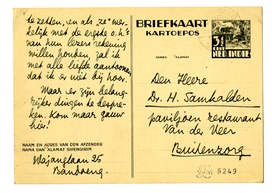 te zetten, en als ze wer-
kelijk met de ergste o.h.'s
van hun lezers rekening
willen houden, zal ik
met alle liefde aantoonen
dat ik er niet bij hoor.
Maar er zijn belang-
rijker dingen te bespre-
ken. Kom maar gauw
hier!
NAAM EN ADRES VAN DEN AFZENDER
NAMA DAN ALAMAT SIPENGIRIM
Wajanglaan 25
Bandoeng.
BRIEFKAART
KARTOEPOS
ADRES ALAMAT
3½
NED. INDIE
Den Heere
Dr. H. Samkalden
paviljoen restaurant
Van der Veer
Buitenzorg
5249